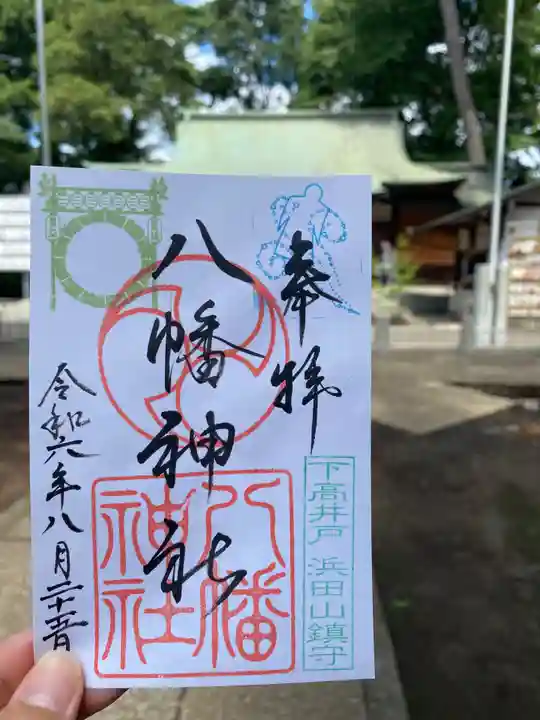 奉拝
八幡神社
八幡
神社
下高井戸 浜田山鎮守
令和六年八月二十五日